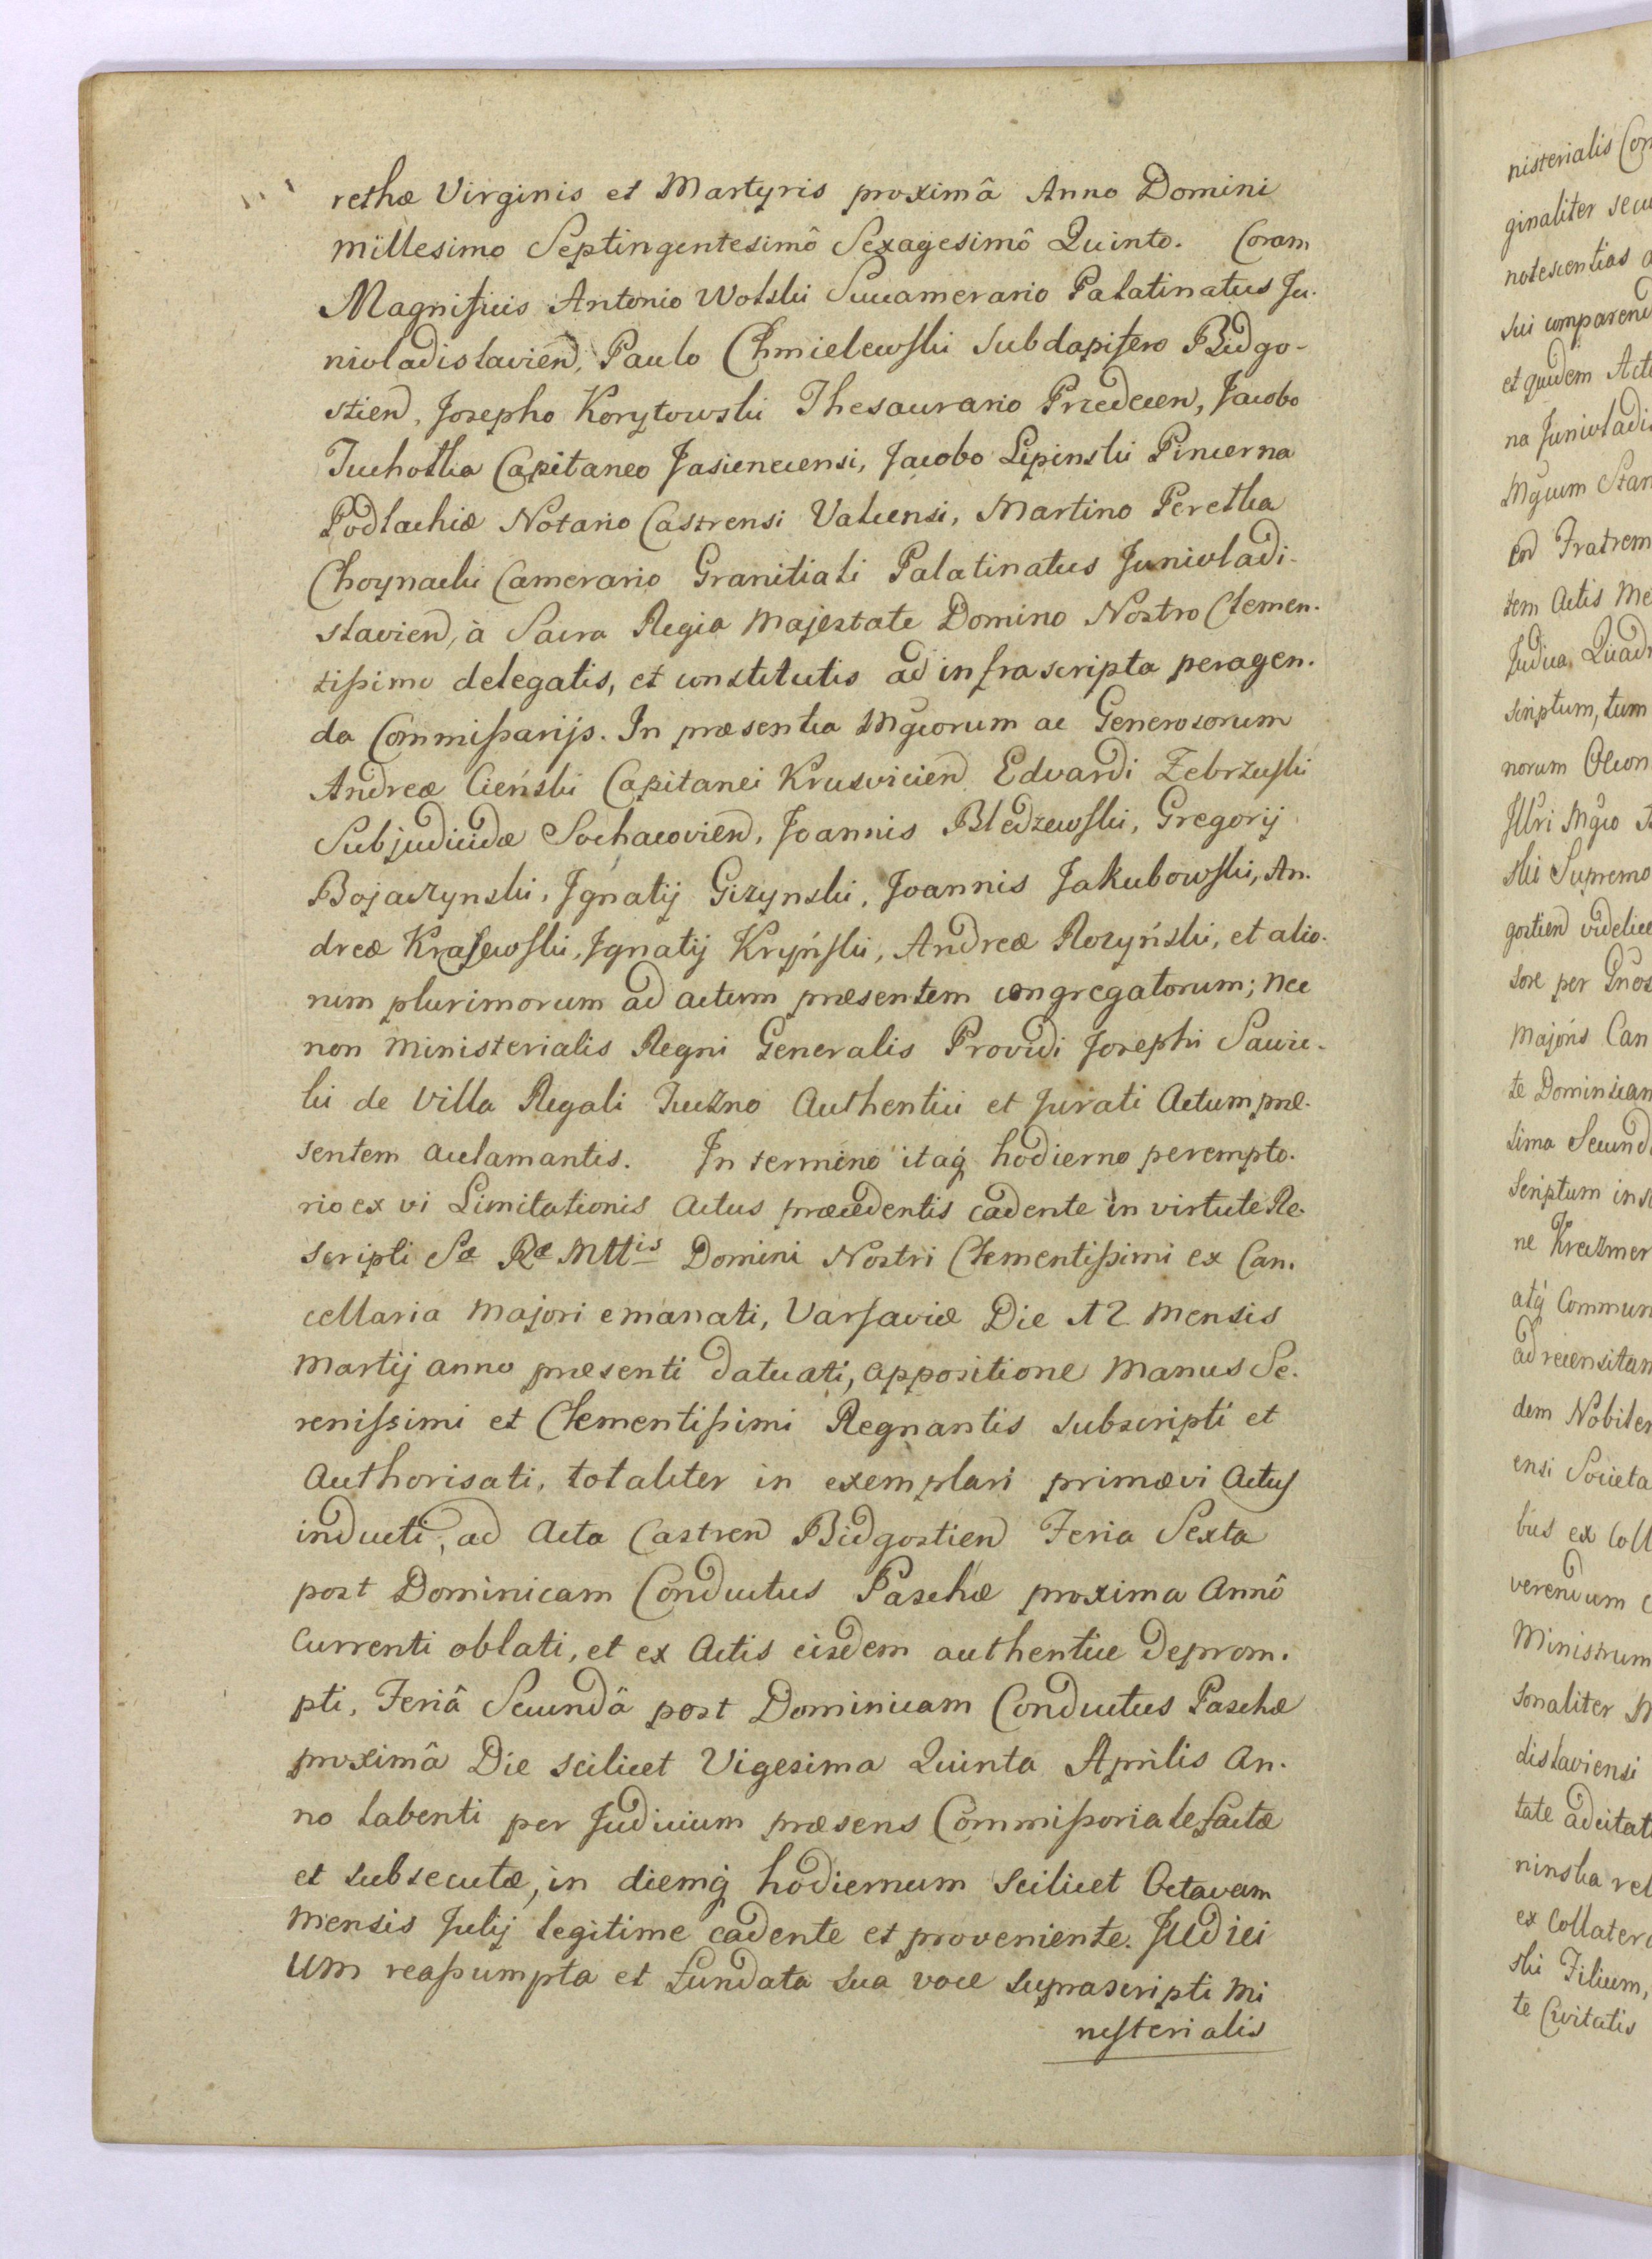 rethæ Virginis et Martyris proximâ Anno Domini
millesimo Septingentesimô Sexagesimô Quinto. Coram
Magnificis Antonio Wolski Succamerario Palatinatus Ju.
nivladislavien, Paulo Chmielewski Subdapifero Bidgo-
stien, Josepho Korytowski Thesaurario Przedecen, Jacobo
Tuchołka Capitaneo Jasienecensi, Jacobo Lipinski Pincerna
Podlachiæ Notario Castrensi Valcensi, Martino Peretka
Choynacki Camerario Granitiali Palatinatus Junivladi-
slavien, à Sacra Regia Majestate Domino Nostro Clemen.
tissimo delegatis, et constitutis ad infrascripta peragen.
da Commissarijs. In præsentia Mgcorum ac Generosorum
Andreæ Cieński Capitanei Krusvicien Edvardi Zebrzuski
Subjudicidæ Sochacovien, Joannis Bledzewski, Gregorij
Bojaczynski, Ignatij Gizynski, Joannis Jakubowski, An.
dreæ Krajewski, Ignatij Kryński, Andreæ Rozyński, et alio.
rum plurimorum ad actum præsentem congregatorum; nec
non Ministerialis Regni Generalis Providi Josephi Sawic-
ki de Villa Regali Tuczno Authentici et Jurati Actum præ.
sentem acclamantis. In termino itaq hodierno perempto.
rio ex vi Limitationis Actus præcedentis cadente in virtute Re.
scripti Sæ Ræ Mttis Domini Nostri Clementissimi ex Can.
cellaria Majori emanati, Varsaviæ Die 12 Mensis
Martij anno præsenti datuati, appositione Manus Se.
renissimi et Clementissimi Regnantis subscripti et
Authorisati, totaliter in exemplari primævi Actus
inducti, ad Acta Castren Bidgostien Feria Sexta
post Dominicam Conductus Paschæ proxima Annô
Currenti oblati, et ex Actis eisdem authentice deprom.
pti, Feriâ Secundâ post Dominicam Conductus Paschæ
proximâ Die scilicet Vigesima Quinta Aprilis An.
no labenti per Judicium præsens Commissoriale factæ
et subsecutæ, in diemq hodiernum scilicet Octavam
Mensis Julij legitime cadente et proveniente. Judici
um reassumpta et fundata sua voce suprascripti Mi
nisterialis
nisterialis Con
ginaliter secu
notescentias
sui comparend
et quidem Act
na Junivladi
Mgcum Stan
en Fratrem
tem Actis Me
Judica Quadr
scriptum, tum
norum Oecon
Illri Mgco
ski Supremo
gostien videlice
sore per Gnos
Majoris Can
te Dominican
sima Secund
Scriptum ins
ne Kreczmer
atq Commun
ad recensitam
dem Nobilem
ensi Societa
bus ex Coll
verendum
Ministrum
sonaliter M
dislaviensi
tate adcitat
ninska rel
ex Collater
ski Filium,
te Civitatis